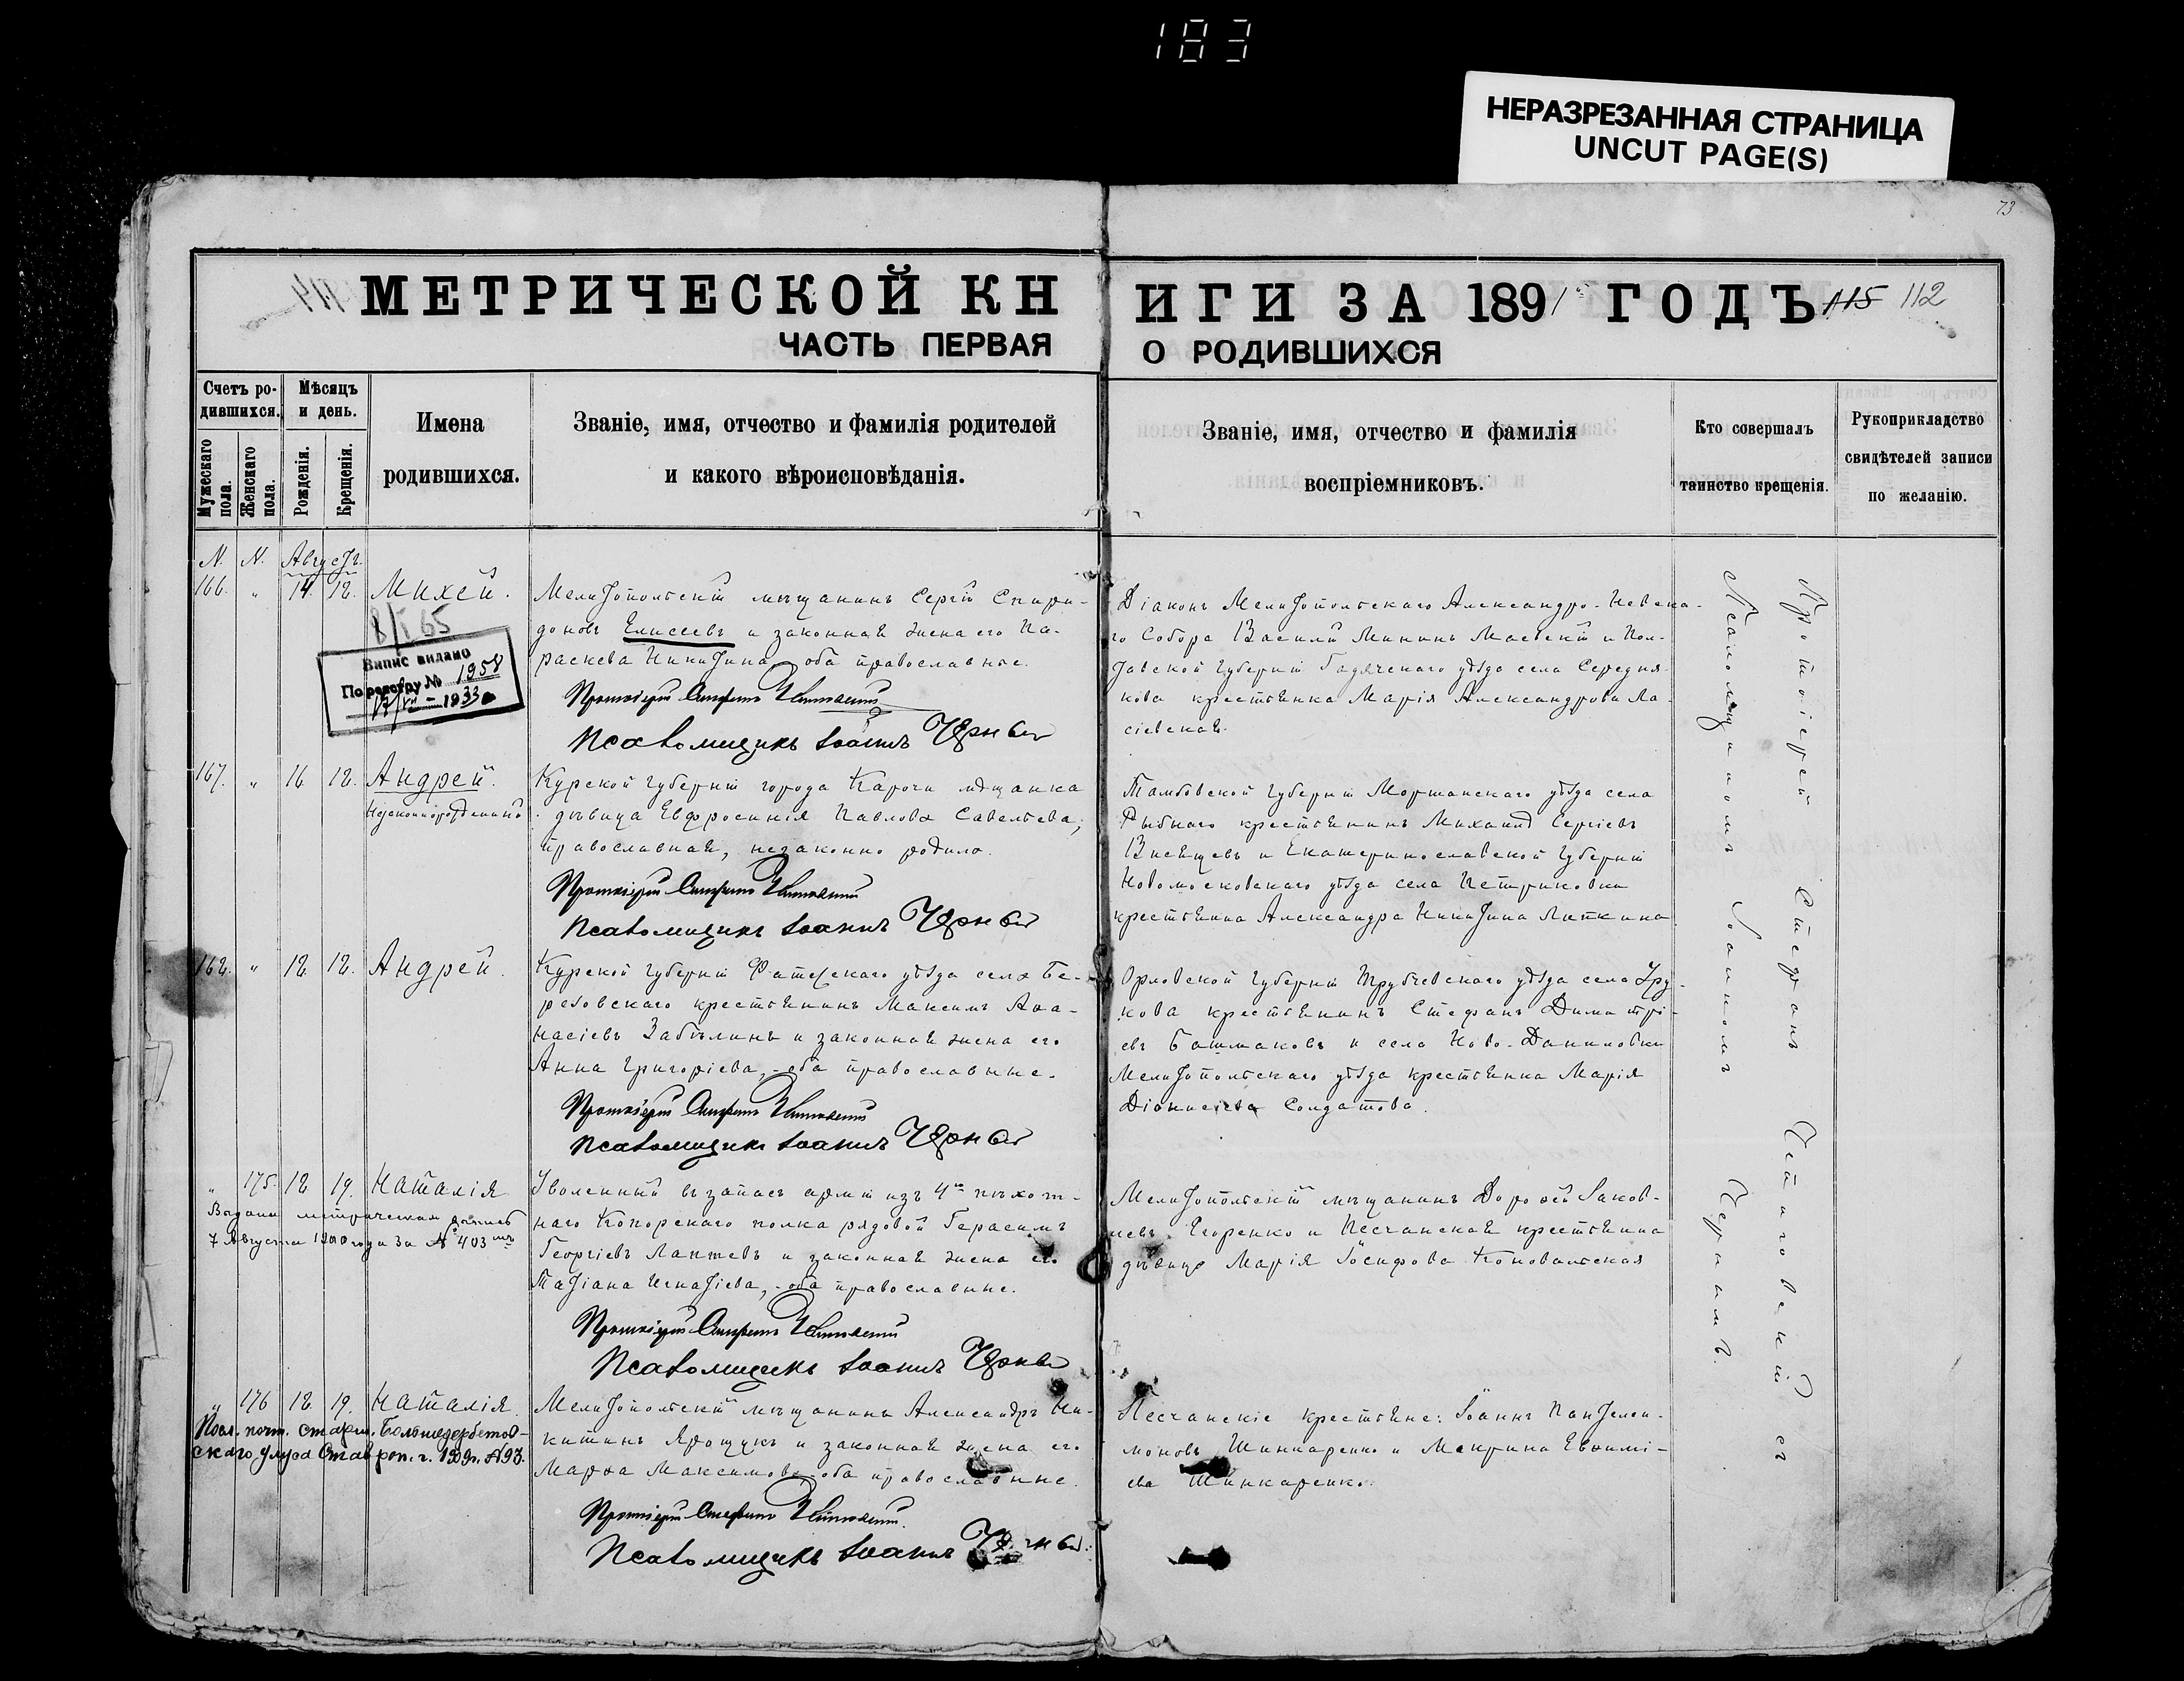 183
НЕРАЗРЕЗАННАЯ СТРАНИЦА
UNCUT PAGE(S)
73
МЕТРИЧЕСКОЙ КН
ИГИ ЗА 1891 ГОДЪ
115 112
ЧАСТЬ ПЕРВАЯ
О РОДИВШИХСЯ
Счетъ ро-
дившихся.
Мѣсяцъ
и день.
Мужескаго
пола.
Женскаго
пола.
Рожденія.
Крещенія.
Имена
родившихся.
Званіе, имя, отчество и фамилія родителей
и какого вѣроисповѣданія.
Званіе, имя, отчество и фамилія
воспріемниковъ.
Кто совершалъ
таинство крещенія.
Рукоприкладство
свидѣтелей записи
по желанію.
N. N. Августъ.
166. " 14. 18. Михей.
8/I 65
Випис видано
По реєстру № 1958
1933
Мелитопольскій мѣщанинъ Сергій Спири-
доновъ Елисеевъ и законная жена его Па-
раскева Никитина, оба православные.
Протоіерей Стефанъ
Псаломщикъ Іоаннъ Чернай
Діаконъ Мелитопольскаго Александро-Невска-
го Собора Василій Мининъ Маевскій и Пол-
тавской губерніи Гадячскаго уѣзда села Середня-
кова крестьянка Марія Александрова Ла-
сіевская.
167. " 16. 18. Андрей.
Незаконнорожденный
Курской губерніи города Карочи мѣщанка
дѣвица Евфросинія Павлова Савельева,
православная, незаконно родила.
Протоіерей Стефанъ
Псаломщикъ Іоаннъ Чернай
Тамбовской губерніи Моршанскаго уѣзда села
Рыбнаго крестьянинъ Михаилъ Сергіевъ
и Екатеринославской губерніи
Новомосковскаго уѣзда села Петриковки
крестьянка Александра Никитина Липкина
168. " 18. 18. Андрей.
Курской губерніи Фатежскаго уѣзда села Бе-
резовскаго крестьянинъ Максимъ Аѳа-
насіевъ Забѣлинъ и законная жена его
Анна Григоріева, - оба православные.
Протоіерей Стефанъ
Псаломщикъ Іоаннъ Чернай
Орловской губерніи Трубчевскаго уѣзда села
кова крестьянинъ Стефанъ Димитрі-
евъ Башмаковъ и села Ново-Даниловки
Мелитопольскаго уѣзда крестьянка Марія
Діонисіева Солдатова.
" 175. 18. 19. Наталія
Выдана метрическая выпись
7 Августа 1900 года за № 403
Уволенный въ запасъ арміи изъ 4го пѣхот-
наго Копорскаго полка рядовой Герасимъ
Георгіевъ Лаптевъ и законная жена его
Татіана Игнатіева, - оба православные.
Протоіерей Стефанъ
Псаломщикъ Іоаннъ Чернай
Мелитопольскій мѣщанинъ Дороѳей Іаков-
левъ Егоренко и Песчанская крестьянка
дѣвица Марія Іосифова Коновальская
" 176 18. 19. Наталія.
Большедербетов-
скаго улуса Ставроп. г. 1909г. № 97.
Мелитопольскій мѣщанинъ Александръ Ни-
китинъ Ярощукъ и законная жена его
Марѳа Максимова, оба православные.
Протоіерей Стефанъ
Псаломщикъ Іоаннъ Чернай
Песчанскіе крестьяне: Іоаннъ Пантелеи-
моновъ Шинкаренко и Макрина Евѳимі-
ева Шинкаренко.
Протоіерей Стефанъ съ
Псаломщикомъ Іоанномъ